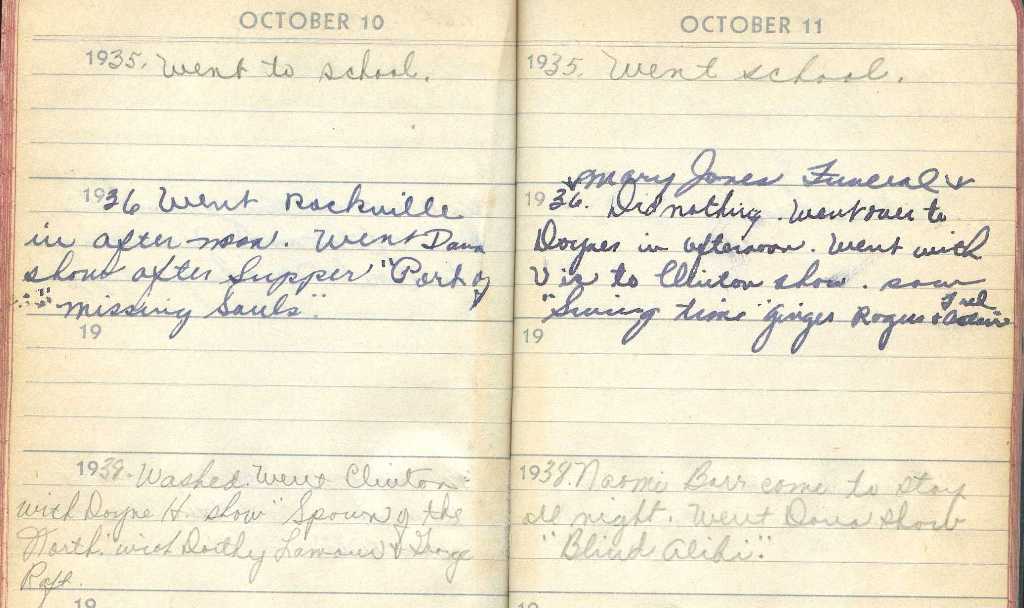 OCTOBER 10
1935. Went to school.
1936 Went Rockville
in after-noon. Went Dana
show after Supper "Port of
"missing Souls".
19
1938. Washed. Went Clinton
with Doyne H. show "Spawn of the
North." with Dorthy Lamour & George
Raft.
19
OCTOBER 11
1935. Went school.
Mary Jones Funeral
1936. Did nothing. Went over to
Doynes in afternoon. Went with
Vir to Clinton show. saw
"Swing time" Ginger Rogers & Fred Astair"
19
1938. Naomi Barr come to stay
all night. Went Dana show
"Blind Alibi".
19